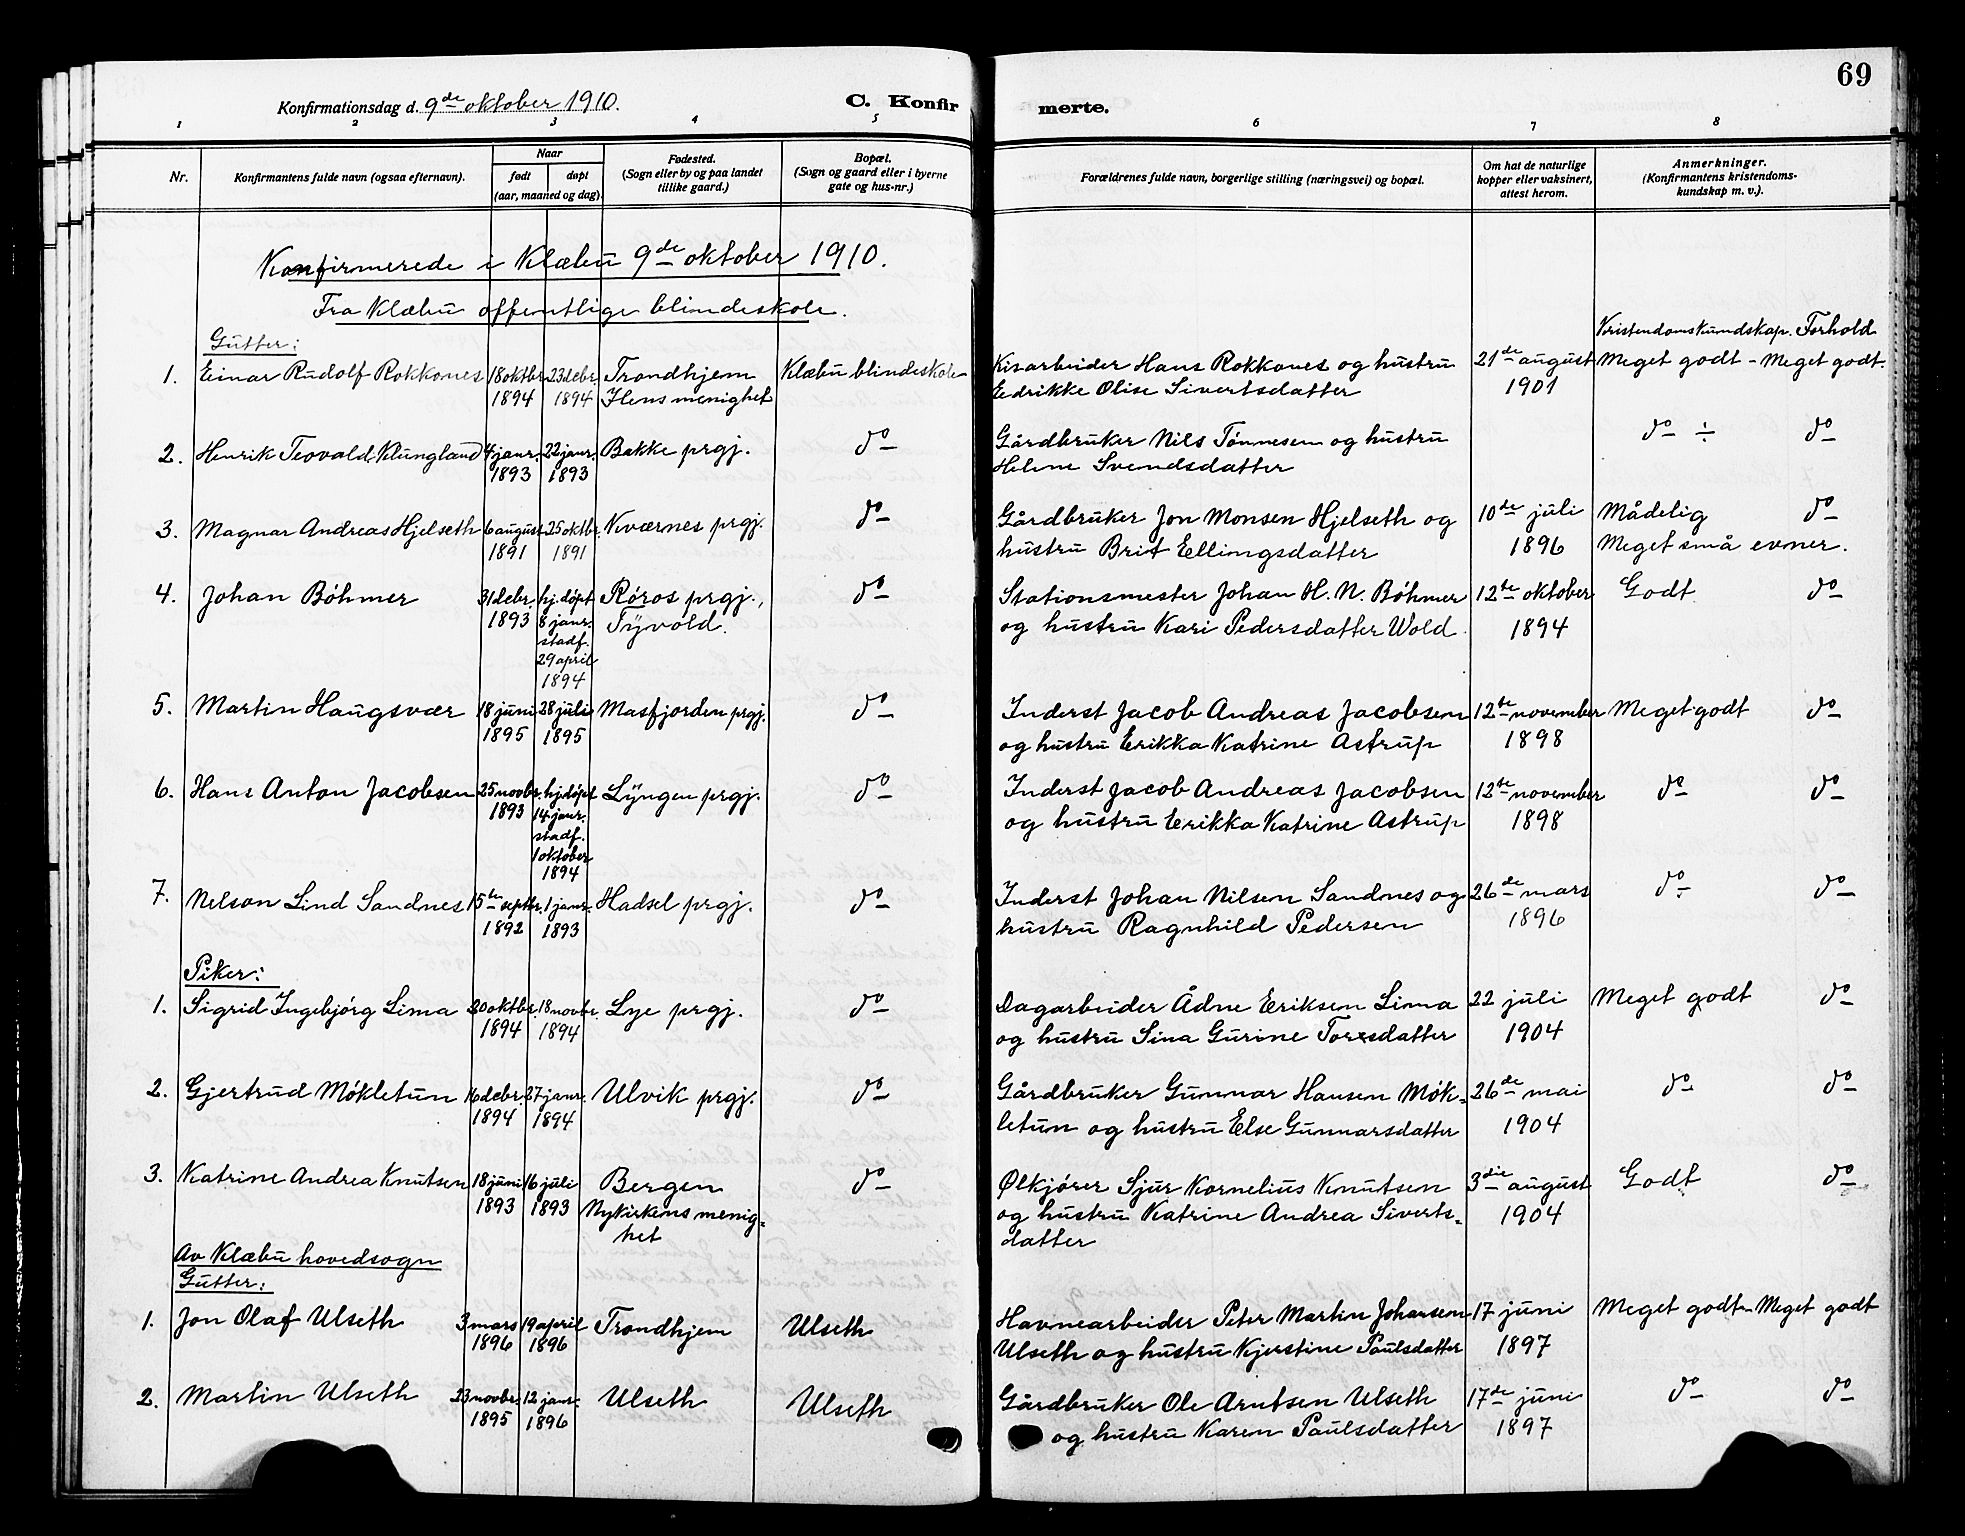 69
Konfirmationsdag d. 9de oktober 1910.
C. Konfirmerte.
1 2 3 4 5 6 7 8
Nr.
Konfirmantens fulde navn (ogsaa efternavn).
Naar
født døpt
(aar, maaned og dag)
Fødested.
(Sogn eller by og paa landet
tillike gaard.)
Bopæl.
(Sogn og gaard eller i byerne
gate og hus-nr.)
Forældrenes fulde navn, borgerlige stilling (næringsvei) og bopæl.
Om hat de naturlige
kopper eller vaksinert,
attest herom.
Anmerkninger.
(Konfirmantens kristendoms-
kundskap m. v.).
Konfirmerede i Klæbu 9de oktober 1910.
Fra Klæbu offentlige blindeskole.
Kristendomskundskap. Forhold
Gutter:
1. Einar Rudolf Rokkones 18 oktbr. 23 debr. Trondhjem Klæbu blindeskole Kisarbeider Hans Rokkones og hustru 21de august Meget godt - Meget godt.
1894 1894 Ilens menighet Edrikke Olise Sivertsdatter 1901
2. Henrik Teovald Klungland 4 janr. 22 janr. Bakke prgj. do Gårdbruker Nils Tønnesen og hustru do ÷ do
1893 1893 Helene Svendsdatter
3. Magnar Andreas Hjelseth 6 august 25 oktbr. Kværnes prgj. do Gårdbruker Jon Monsen Hjelseth og 10de juli Mådelig do
1891 1891 hustru Brit Ellingsdatter 1896 Meget små evner.
4. Johan Böhmer 31 debr. hj.døpt Røros prgj., do Stationsmester Johan H. N. Böhmer 12te oktober Godt do
1893 8 janr. Tyvold. og hustru Kari Pedersdatter Wold. 1894
stadf.
29 april
1894
5. Martin Haugsvær 18 juni 28 juli Masfjorden prgj. do Inderst Jacob Andreas Jacobsen 12te november Meget godt do
1895 1895 og hustru Erikka Katrine Astrup 1898
6. Hans Anton Jacobsen 25 novbr. hj.døpt Lyngen prgj. do Inderst Jacob Andreas Jacobsen 12te november do do
1893 14 janr. og hustru Erikka Katrine Astrup 1898
stadf.
1 oktober
1894
7. Nelson Lind Sandnes 15de septbr. 1 janr. Hadsel prgj. do Inderst Johan Nilsen Sandnes og 26de mars do do
1892 1893 hustru Ragnhild Pedersen 1896
Piker:
1. Sigrid Ingebjørg Lima 20 oktbr. 18 novbr. Lye prgj. do Dagarbeider Ådne Eriksen Lima 22 juli Meget godt do
1894 1894 og hustru Sina Gurine Torsdatter 1904
2. Gjertrud Møkletun 16 debr. 27 janr. Ulvik prgj. do Gårdbruker Gunnar Hansen Møk- 26de mai do do
1894 1894 letun og hustru Else Gunnarsdatter 1904
3. Katrine Andrea Knutsen 18 juni 16 juli Bergen do Ølkjører Sjur Kornelius Knutsen 3die august Godt do
1893 1893 Nykirkens menig- og hustru Katrine Andrea Siverts- 1904
het datter
Av Klæbu hovedsogn
Gutter:
1. Jon Olaf Ulseth 3 mars 19 april Trondhjem Ulseth Havnearbeider Peter Martin Johansen 17 juni Meget godt - Meget godt
1896 1896 Ulseth og hustru Kjerstine Paulsdatter 1897
2. Martin Ulseth 23 novbr. 12 janr. Ulseth Ulseth Gårdbruker Ole Arntsen Ulseth 17de juni do do
1895 1896 og hustru Karen Paulsdatter 1897